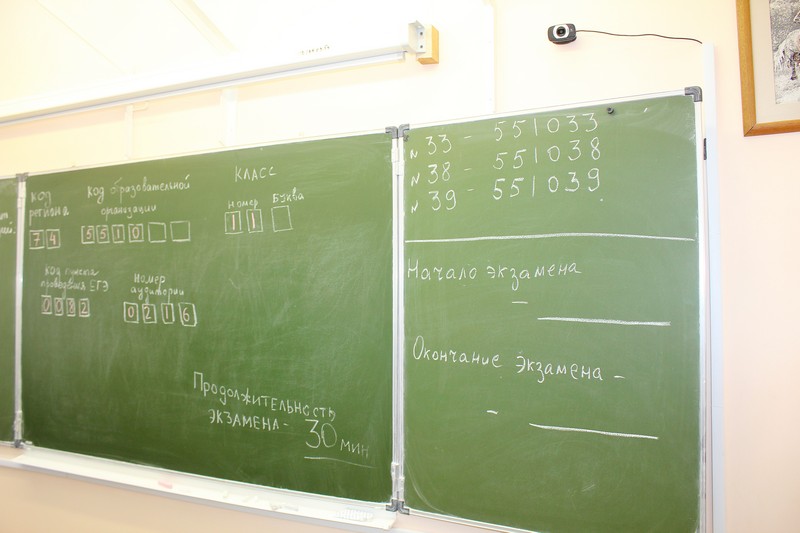 КОД
региона
7 4
КОД образовательной
организации
5 5 1 0
КЛАСС
номер
1 1
БУКВА
КОД пункта
проведения ЕГЭ
0 0 8 2
номер
аудитории
0 2 1 6
Продолжительность
ЭКЗАМЕНА - 30 мин
N 33 - 551033
N 38 - 551038
N 39 - 551039
Начало экзамена
–
Окончание экзамена –
–